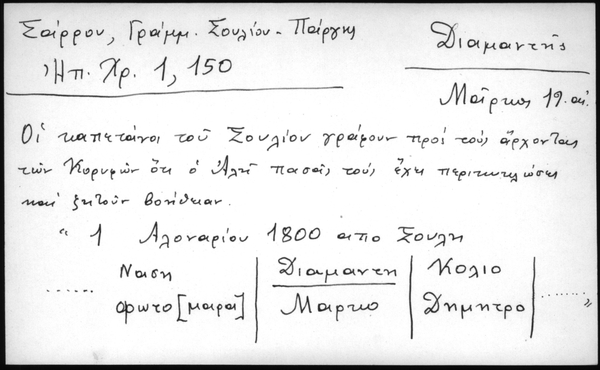 Σάρρου, Γράμμ. Σουλίου - Πάργης
Ἠπ. Χρ. 1, 150
Διαμαντῆς
Μάρκος 19. αἰ.
Οἱ καπετάνοι τοῦ Σουλίου γράφουν πρὸς τοὺς ἄρχοντας
τῶν Κορυφῶν ὅτι ὁ Ἀλῆ πασᾶς τοὺς ἔχει περικυκλώσει
καὶ ζητοῦν βοήθειαν.
" 1 Αλοναρίου 1800 απο Σουλη
Ναση | Διαμαντη | Κολιο
...... φωτο[μαρα] | Μαρκο | Δημητρο ...... "